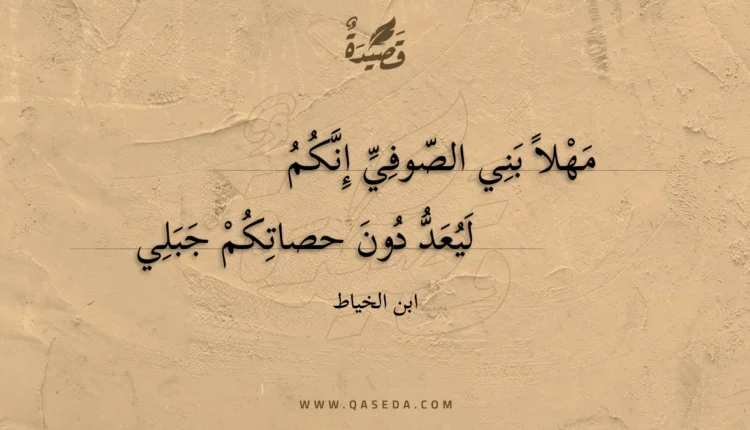 قَصِيدَةٌ
مَهْلاً بَنِي الصّوفِيِّ إِنَّكُمُ
لَيُعَدُّ دُونَ حصاتِكُمْ جَبَلِي
ابن الخياط
WWW.QASEDA.COM